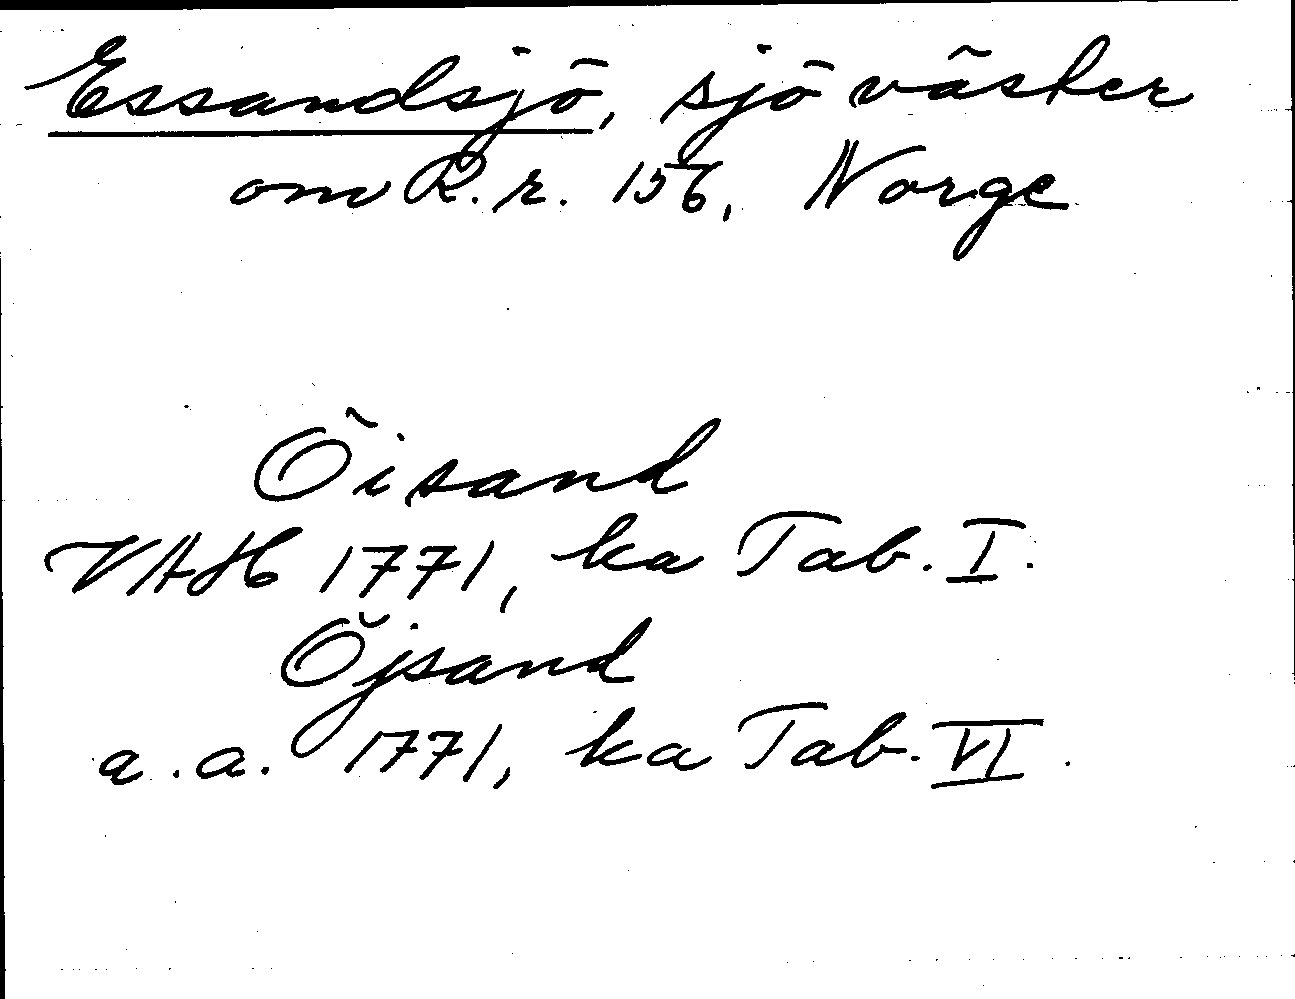 Essandsjö, sjö väster
om R.r. 156, Norge
Öisand
VAH 1771, ka Tab. I.
Öjsand
a.a. 1771, ka Tab. VI.